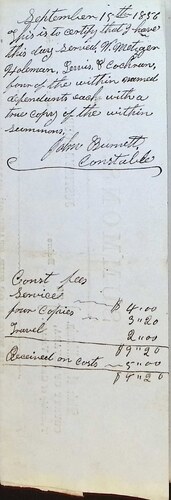 September 15th 1856
This is to certify that I have
this day served W. Metzger
Holeman, Ferris, & Cochran,
four of the within named
dependents each with a
true copy of the within
summons.
John Burnett,
Constable
Const fees
Service $4"00
four Copies 3"20
Travel 2"00
$9"20
Received on costs 5"00
$4"20